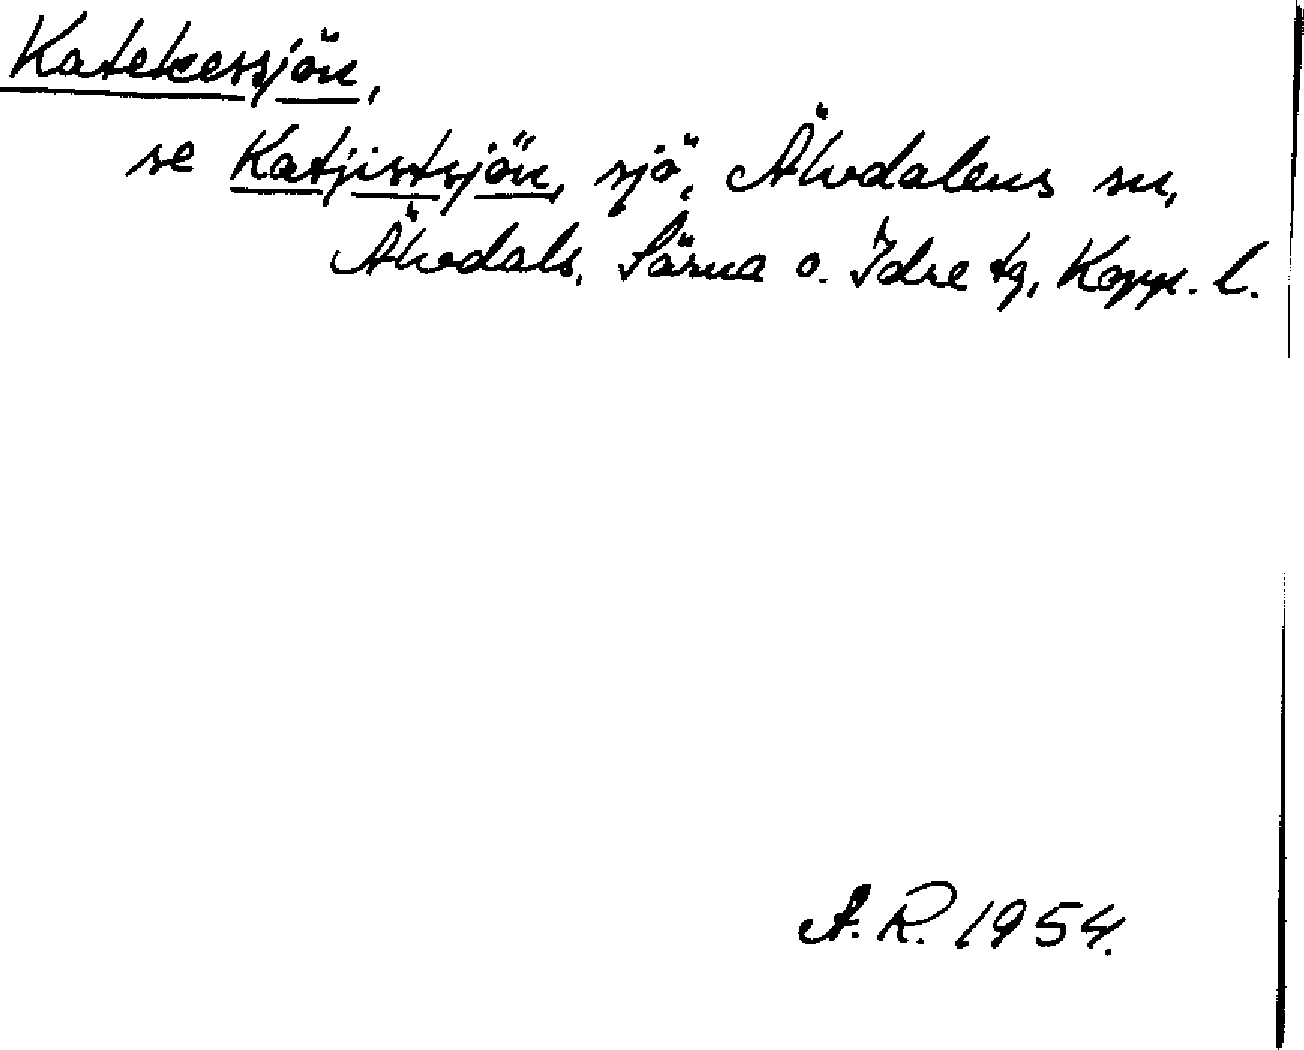 Katekessjön,
se Katjistsjön, sjö, Älvdalens sn,
Älvdals, Särna o. Idre tg, Kopp. l.
A. R. 1954.